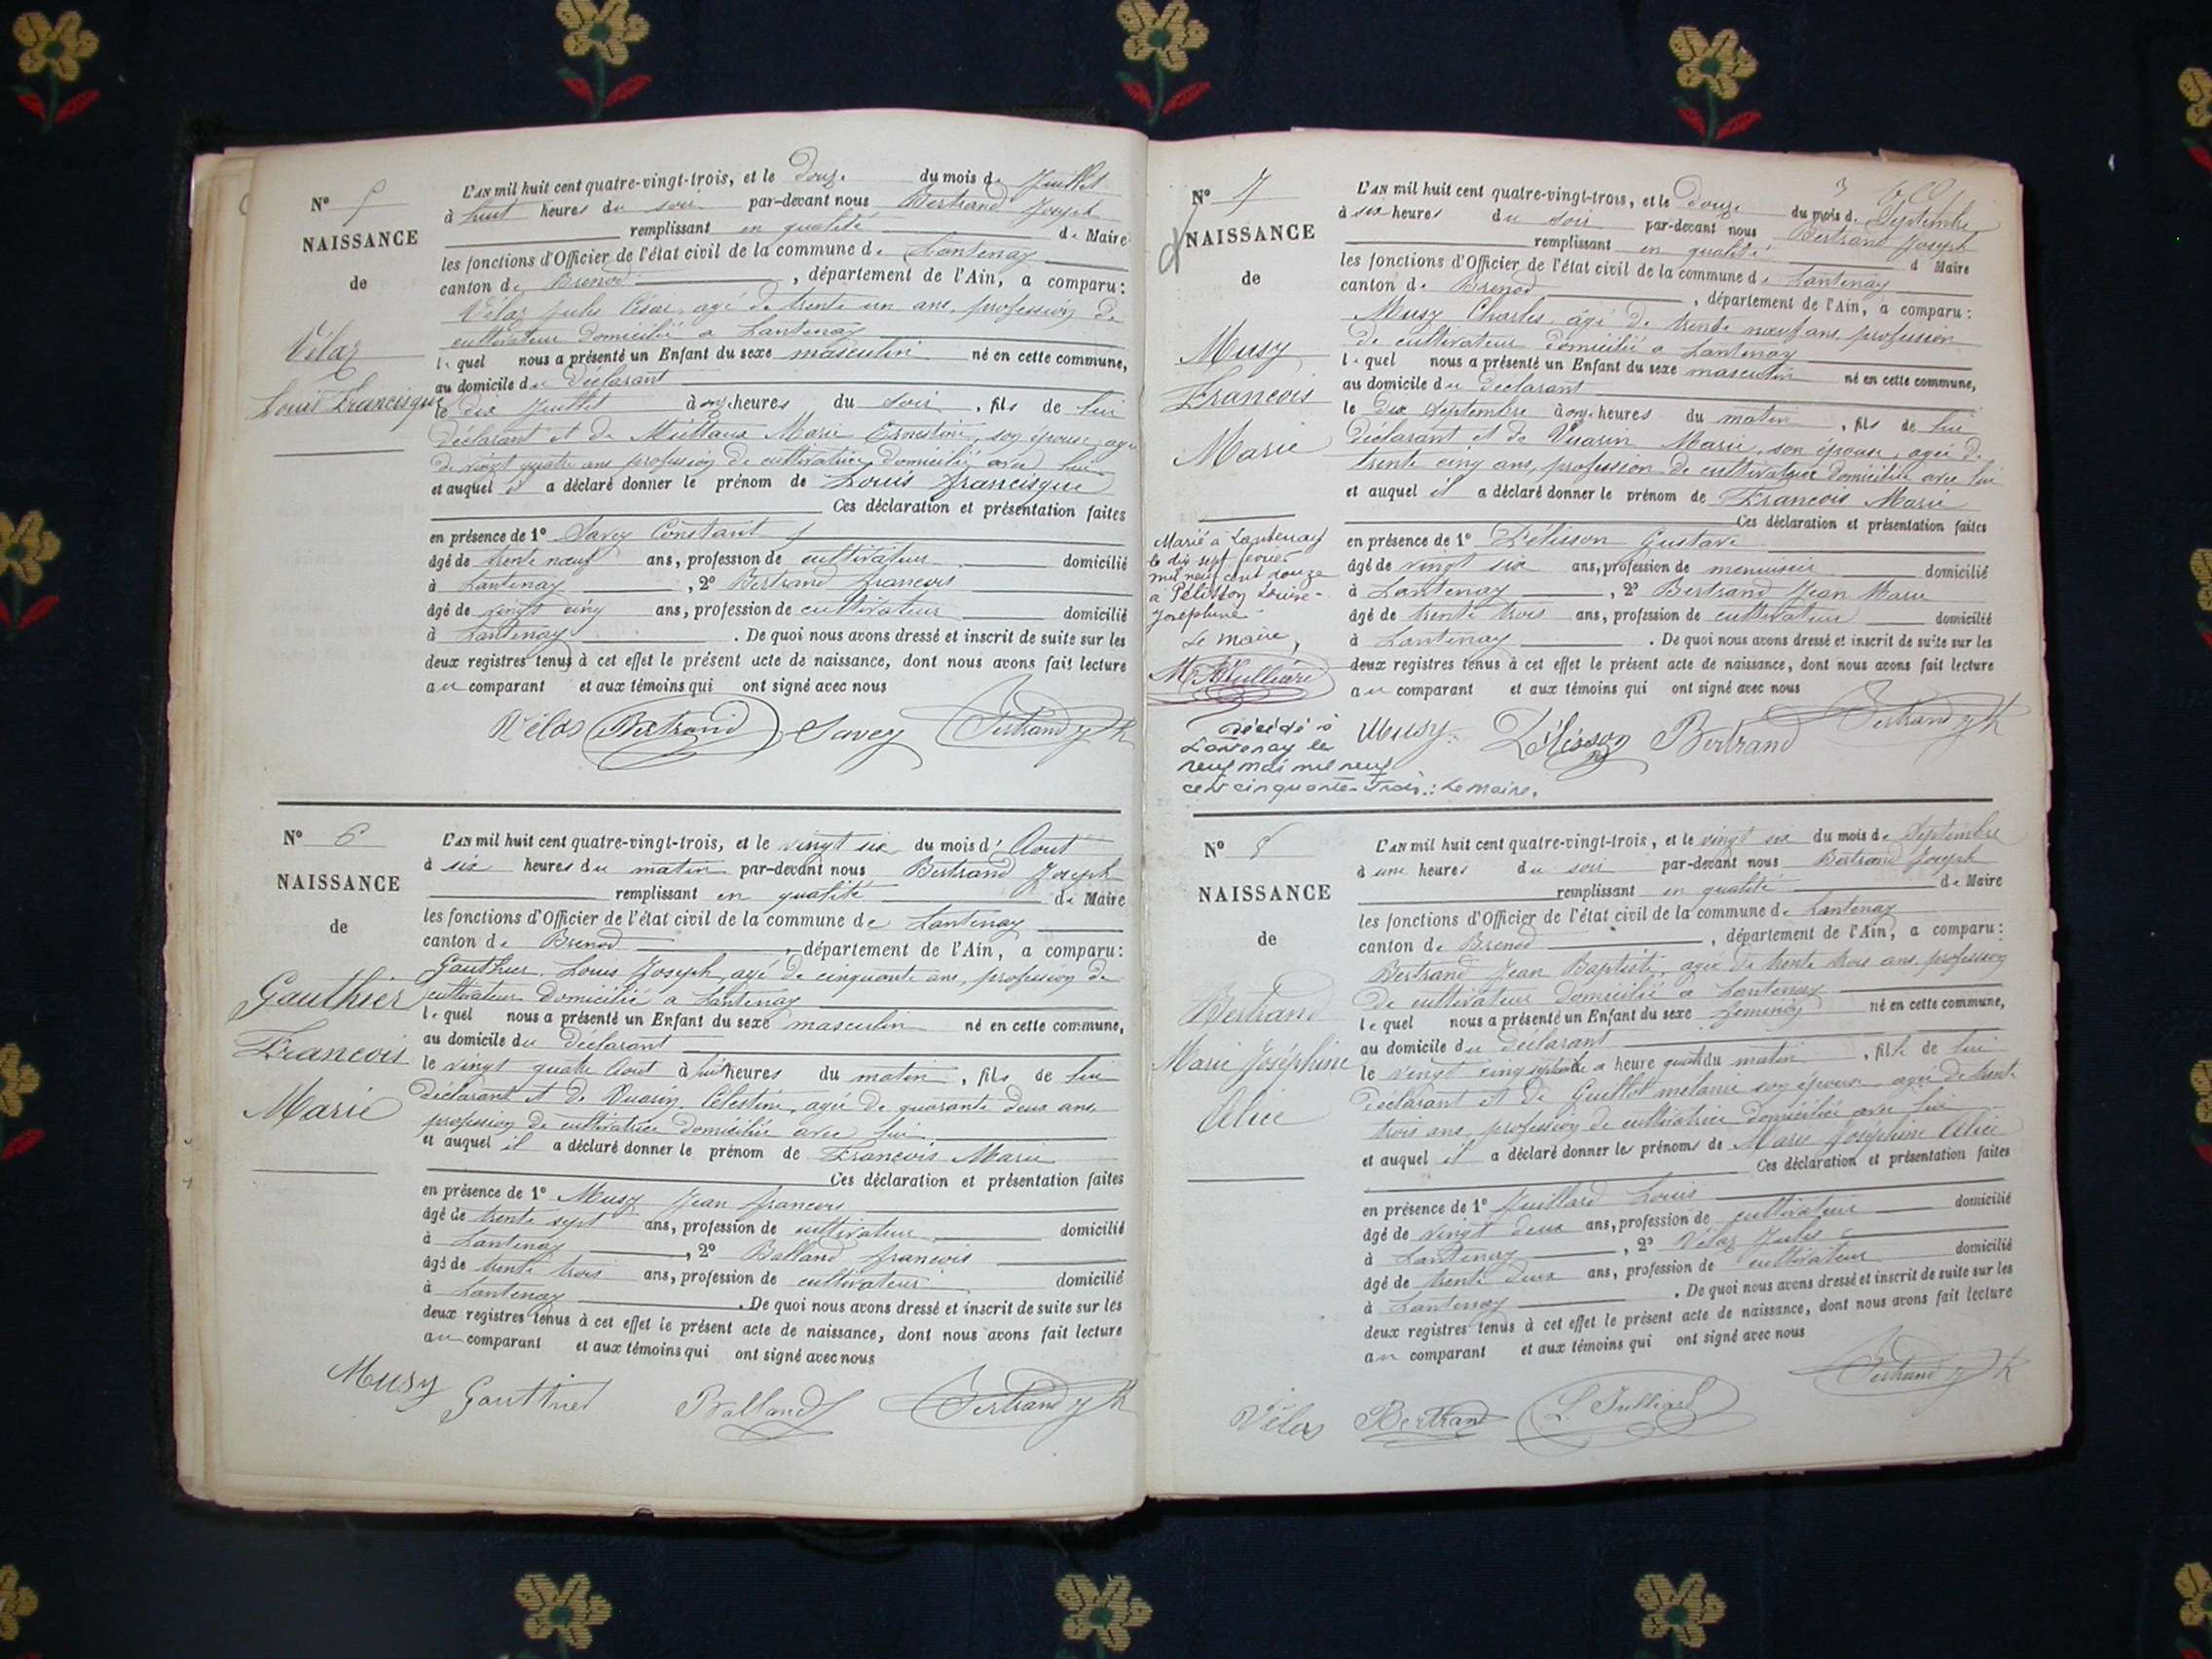 Nº 5
NAISSANCE
de
Vélaz
Louis Francisque
L'AN mil huit cent quatre-vingt-trois, et le Douze du mois de Juillet
à huit heures du soir par-devant nous Bertrand Joseph
remplissant en qualité de Maire
les fonctions d'Officier de l'état civil de la commune de Lantenay
canton de Brenod, département de l'Ain, a comparu:
Vélaz Jules César, agé de trente un ans, profession de
cultivateur Domicilié a Lantenay
lequel nous a présenté un Enfant du sexe masculin né en cette commune,
au domicile du Déclarant
le dix Juillet à onze heures du soir, fils de lui
Déclarant et de Marie Ernestine, son épouse, agée
de vingt quatre ans profession de cultivatrice, Domicilié avec lui
et auquel il a déclaré donner le prénom de Louis francisque
Ces déclaration et présentation faites
en présence de 1º Savey Constant
âgé de trente neuf ans, profession de cultivateur domicilié
à Lantenay, 2º Bertrand francois
âgé de vingt cinq ans, profession de cultivateur domicilié
à Lantenay. De quoi nous avons dressé et inscrit de suite sur les
deux registres tenus à cet effet le présent acte de naissance, dont nous avons fait lecture
au comparant et aux témoins qui ont signé avec nous
Vélas Bertrand Savey Bertrand Jph
Nº 6
NAISSANCE
de
Gauthier
Francois
Marie
L'AN mil huit cent quatre-vingt-trois, et le vingt six du mois d'Aout
à six heures du matin par-devant nous Bertrand Joseph
remplissant en qualité de Maire
les fonctions d'Officier de l'état civil de la commune de Lantenay
canton de Brenod, département de l'Ain, a comparu:
Gauthier Louis Joseph, agé de cinquante ans, profession de
cultivateur Domicilié a Lantenay
lequel nous a présenté un Enfant du sexe masculin né en cette commune,
au domicile du Déclarant
le vingt quatre Aout à huit heures du matin, fils de lui
Déclarant et De Vuarin Célestine, agée De quarante deux ans,
profession de cultivatrice domiciliée avec lui
et auquel il a déclaré donner le prénom de Francois Marie
Ces déclaration et présentation faites
en présence de 1º Musy Jean francois
âgé de trente sept ans, profession de cultivateur domicilié
à Lantenay, 2º Balland francois
âgé de trente trois ans, profession de cultivateur domicilié
à Lantenay. De quoi nous avons dressé et inscrit de suite sur les
deux registres tenus à cet effet le présent acte de naissance, dont nous avons fait lecture
au comparant et aux témoins qui ont signé avec nous
Musy Gauthier Balland Bertrand Jph
Nº 7
NAISSANCE
de
Musy
Francois
Marie
Marié à Lantenay
le dix sept février
mil neuf cent douze
a Pélisson Louise-
Joséphine
Le maire,
Décédé à
Lantenay le
neuf mai mil neuf
cent cinquante-trois : Le maire.
L'AN mil huit cent quatre-vingt-trois, et le Douze du mois de Septembre
à six heures du soir par-devant nous Bertrand Joseph
remplissant en qualité de Maire
les fonctions d'Officier de l'état civil de la commune de Lantenay
canton de Brenod, département de l'Ain, a comparu:
Musy Charles, agé De trente neuf ans, profession
de cultivateur Domicilié a Lantenay
lequel nous a présenté un Enfant du sexe masculin né en cette commune,
au domicile du Déclarant
le Dix Septembre à onze heures du matin, fils de lui
Déclarant et de Vuarin Marie, son épouse, agée De
trente cinq ans, profession De cultivatrice Domiciliée avec lui
et auquel il a déclaré donner le prénom de Francois Marie
Ces déclaration et présentation faites
en présence de 1º Pélisson Gustave
âgé de vingt six ans, profession de menuisier domicilié
à Lantenay, 2º Bertrand Jean Marie
âgé de trente trois ans, profession de cultivateur domicilié
à Lantenay. De quoi nous avons dressé et inscrit de suite sur les
deux registres tenus à cet effet le présent acte de naissance, dont nous avons fait lecture
au comparant et aux témoins qui ont signé avec nous
Musy Pélisson Bertrand Bertrand Jph
Nº 8
NAISSANCE
de
Bertrand
Marie Joséphine
Alice
L'AN mil huit cent quatre-vingt-trois, et le vingt six du mois de Septembre
à une heures du soir par-devant nous Bertrand Joseph
remplissant en qualité de Maire
les fonctions d'Officier de l'état civil de la commune de Lantenay
canton de Brenod, département de l'Ain, a comparu:
Bertrand Jean Baptiste, agé De trente trois ans, profession
De cultivateur Domicilié a Lantenay
lequel nous a présenté un Enfant du sexe feminin né en cette commune,
au domicile du Déclarant
le vingt cinq septembre a heure du matin, fille de lui
Déclarant et De Guillot melanie son épouse, agée de trente
trois ans, profession de cultivatrice domiciliée avec lui
et auquel il a déclaré donner les prénoms de Marie Joséphine Alice
Ces déclaration et présentation faites
en présence de 1º Juillard Louis
âgé de vingt deux ans, profession de cultivateur domicilié
à Lantenay, 2º Vélaz Jules
âgé de trente deux ans, profession de cultivateur domicilié
à Lantenay. De quoi nous avons dressé et inscrit de suite sur les
deux registres tenus à cet effet le présent acte de naissance, dont nous avons fait lecture
au comparant et aux témoins qui ont signé avec nous
Vélas Bertrand L. Julliard Bertrand Jph